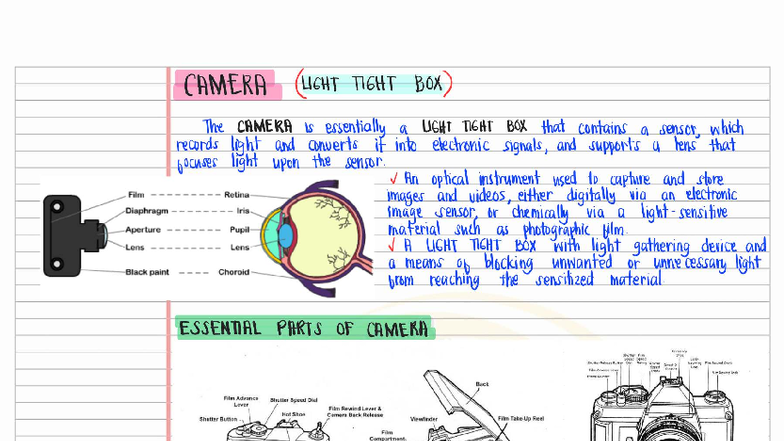 CAMERA (LIGHT TIGHT BOX)
The CAMERA is essentially a LIGHT TIGHT BOX that contains a sensor, which
records light and converts it into electronic signals, and supports a lens that
focuses light upon the sensor.
Film Retina
Diaphragm Iris
Aperture Pupil
Lens Lens
Black paint Choroid
✓ An optical instrument used to capture and store
images and videos, either digitally via an electronic
image sensor, or chemically via a light-sensitive
material such as photographic film.
✓ A LIGHT TIGHT BOX with light gathering device and
a means of blocking unwanted or unnecessary light
from reaching the sensitized material
ESSENTIAL PARTS OF CAMERA
Film Advance
Lever
Shutter Speed Dial
Shutter Button
Hot Shoe
Film Rewind Lever &
Camera Back Release
Back
Viewfinder
Film Take Up Reel
Film
Compartment